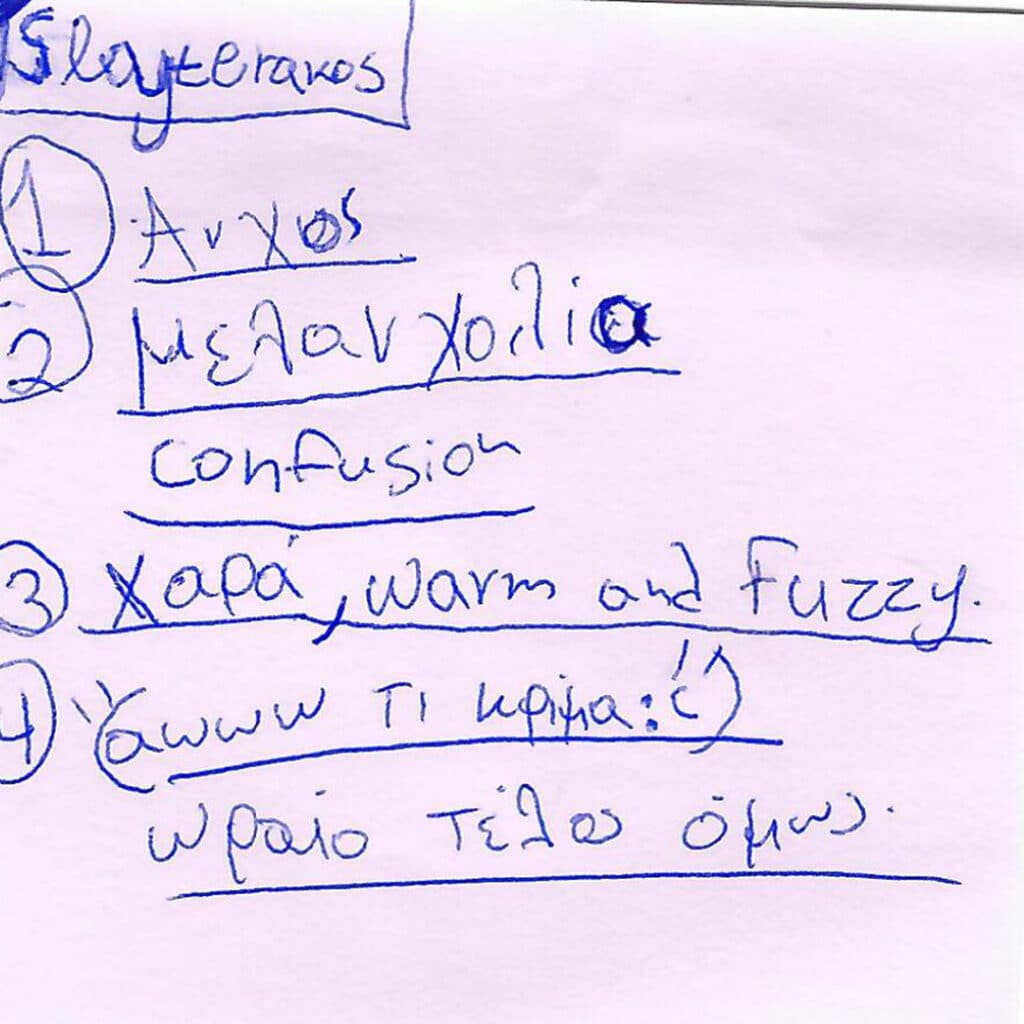 Slayterakos
1 Ανχος
2 μελανχολία
confusion
3 χαρά, warm and Fuzzy.
4 άωωω τι κρίμα :')
ωραίο τέλος όμως.